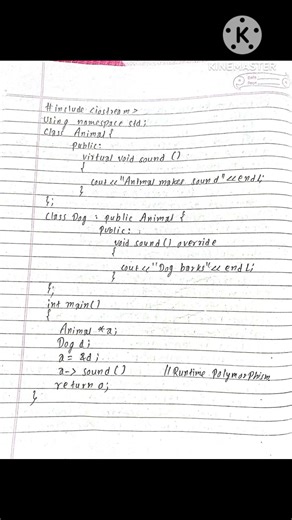 KINEMASTER
#include <iostream>
Using namespace std;
Class Animal {
public:
virtual void sound ()
{
cout<<"Animal makes sound"<<endl;
}
};
Class Dog : public Animal {
public:
void sound() override
{
cout<<"Dog barks"<<endl;
}
};
int main()
{
Animal *a;
Dog d;
a = &d;
a-> sound() //Runtime Polymorphism
return 0;
}